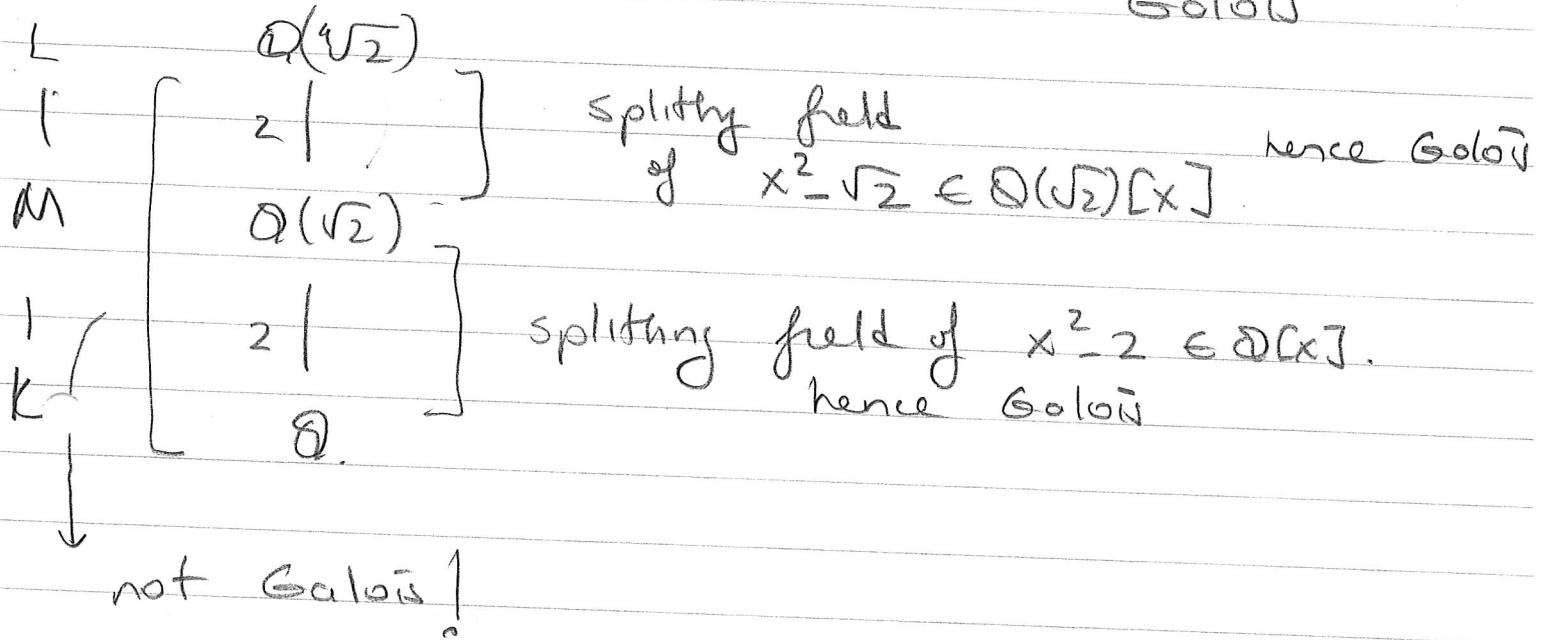 Galois
L ℚ(∜2)
| 2 | splitting field
of x²-√2 ∈ ℚ(√2)[x]. hence Galois
M ℚ(√2)
| 2 | splitting field of x²-2 ∈ ℚ[x].
K hence Galois
ℚ.
not Galois!